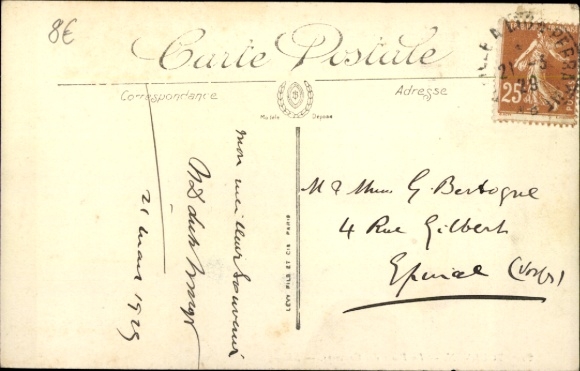 8€
Carte Postale
Correspondance
Adresse
Modèle Déposé
25
21 - 3
LEVY FILS ET CIE PARIS
mon meilleur souvenir
21 mars 1929
M & Mme G. Bertogne
4 Rue Gilbert
Epinal (Vosges)